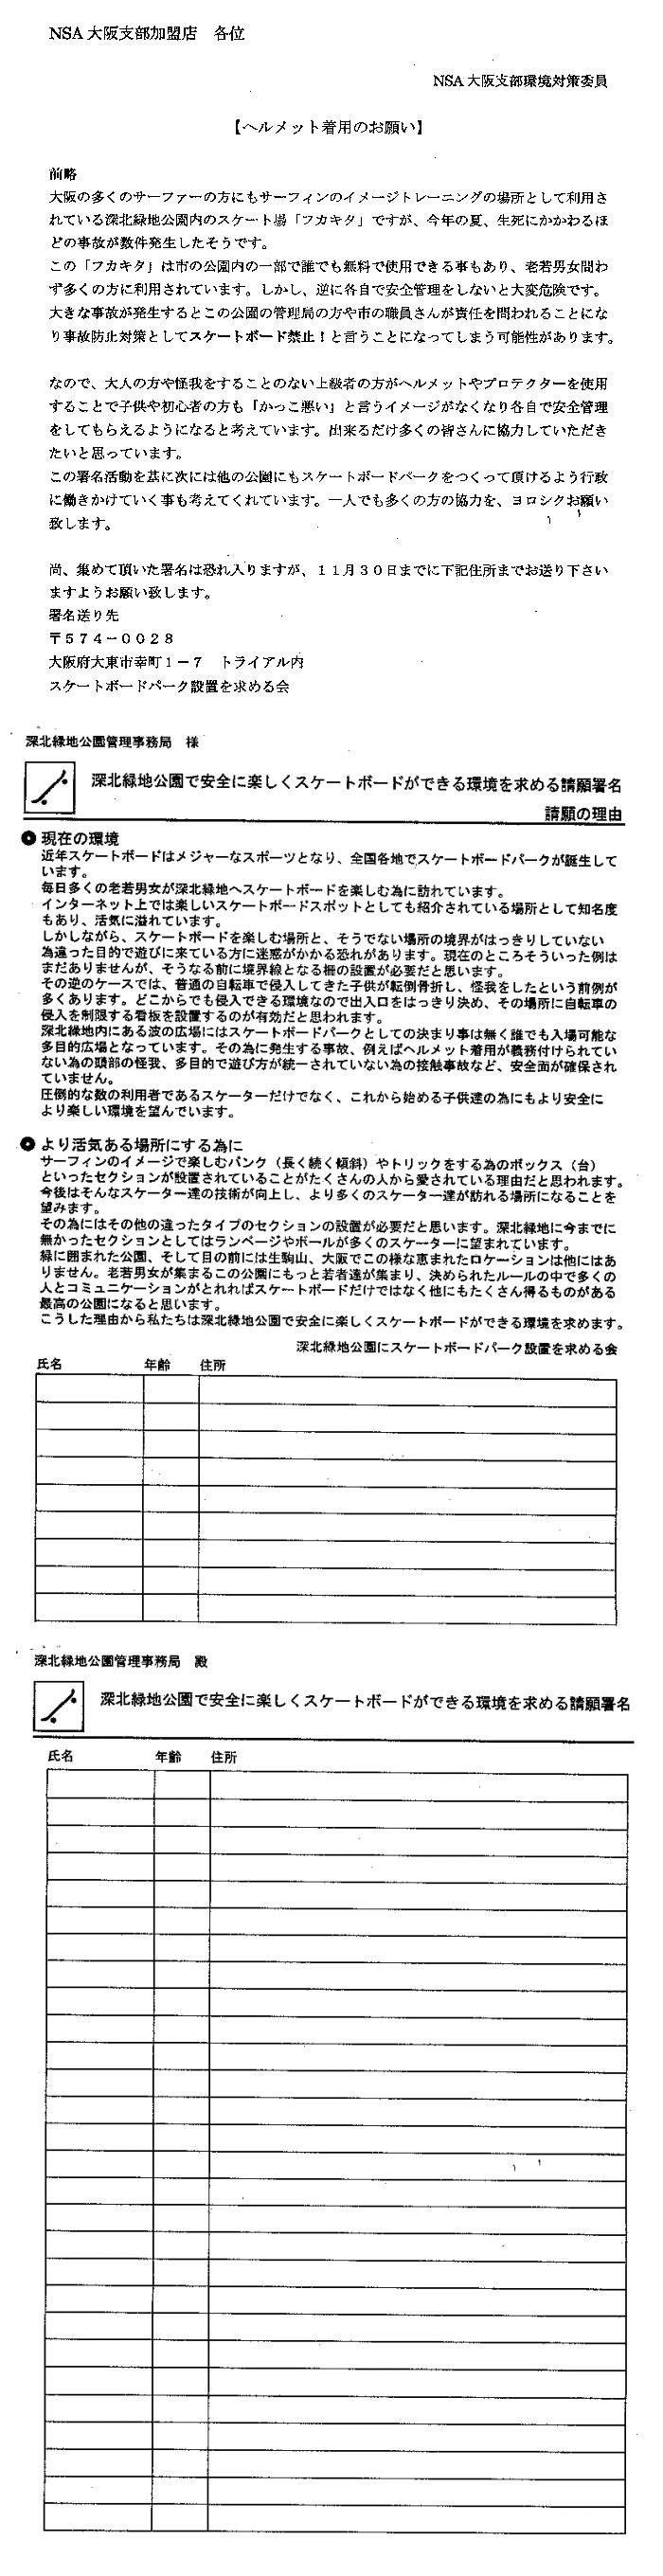 NSA大阪支部加盟店　各位
NSA大阪支部環境対策委員
【ヘルメット着用のお願い】
前略
大阪の多くのサーファーの方にもサーフィンのイメージトレーニングの場所として利用さ
れている深北緑地公園内のスケート場「フカキタ」ですが、今年の夏、生死にかかわるほ
どの事故が数件発生したそうです。
この「フカキタ」は市の公園内の一部で誰でも無料で使用できる事もあり、老若男女問わ
ず多くの方に利用されています。しかし、逆に各自で安全管理をしないと大変危険です。
大きな事故が発生するとこの公園の管理局の方や市の職員さんが責任を問われることにな
り事故防止対策としてスケートボード禁止！と言うことになってしまう可能性があります。
なので、大人の方や怪我をすることのない上級者の方がヘルメットやプロテクターを使用
することで子供や初心者の方も『かっこ悪い』と言うイメージがなくなり各自で安全管理
をしてもらえるようになると考えています。出来るだけ多くの皆さんに協力していただき
たいと思っています。
この署名活動を基に次には他の公園にもスケートボードパークをつくって頂けるよう行政
に働きかけていく事も考えてくれています。一人でも多くの方の協力を、ヨロシクお願い
致します。
尚、集めて頂いた署名は恐れ入りますが、１１月３０日までに下記住所までお送り下さい
ますようお願い致します。
署名送り先
〒５７４－００２８
大阪府大東市幸町１－７　トライアル内
スケートボードパーク設置を求める会
深北緑地公園管理事務局　様
深北緑地公園で安全に楽しくスケートボードができる環境を求める請願署名
請願の理由
現在の環境
近年スケートボードはメジャーなスポーツとなり、全国各地でスケートボードパークが誕生して
います。
毎日多くの老若男女が深北緑地へスケートボードを楽しむ為に訪れています。
インターネット上では楽しいスケートボードスポットとしても紹介されている場所として知名度
もあり、活気に溢れています。
しかしながら、スケートボードを楽しむ場所と、そうでない場所の境界がはっきりしていない
為違った目的で遊びに来ている方に迷惑がかかる恐れがあります。現在のところそういった例は
まだありませんが、そうなる前に境界線となる柵の設置が必要だと思います。
その逆のケースでは、普通の自転車で侵入してきた子供が転倒骨折し、怪我をしたという前例が
多くあります。どこからでも侵入できる環境なので出入口をはっきり決め、その場所に自転車の
侵入を制限する看板を設置するのが有効だと思われます。
深北緑地内にある波の広場にはスケートボードパークとしての決まり事は無く誰でも入場可能な
多目的広場となっています。その為に発生する事故、例えばヘルメット着用が義務付けられてい
ない為の頭部の怪我、多目的で遊び方が統一されていない為の接触事故など、安全面が確保され
ていません。
圧倒的な数の利用者であるスケーターだけでなく、これから始める子供達の為にもより安全に
より楽しい環境を望んでいます。
より活気ある場所にする為に
サーフィンのイメージで楽しむバンク（長く続く傾斜）やトリックをする為のボックス（台）
といったセクションが設置されていることがたくさんの人から愛されている理由だと思われます。
今後はそんなスケーター達の技術が向上し、より多くのスケーター達が訪れる場所になることを
望みます。
その為にはその他の違ったタイプのセクションの設置が必要だと思います。深北緑地に今までに
無かったセクションとしてはランページやボールが多くのスケーターに望まれています。
緑に囲まれた公園、そして目の前には生駒山、大阪でこの様な恵まれたロケーションは他にはあ
りません。老若男女が集まるこの公園にもっと若者達が集まり、決められたルールの中で多くの
人とコミュニケーションがとれればスケートボードだけではなく他にもたくさん得るものがある
最高の公園になると思います。
こうした理由から私たちは深北緑地公園で安全に楽しくスケートボードができる環境を求めます。
深北緑地公園にスケートボードパーク設置を求める会
氏名　年齢　住所
深北緑地公園管理事務局　殿
深北緑地公園で安全に楽しくスケートボードができる環境を求める請願署名
氏名　年齢　住所